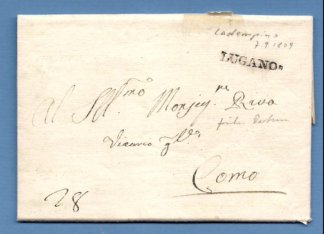 Cadempino
7.9.1809
LUGANO.
Al Ill.mo Monsig.re Riva
Vicario g.le
Como
28